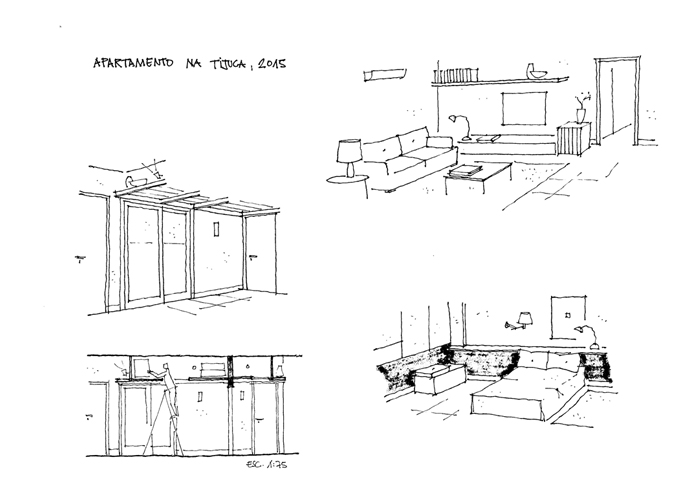 APARTAMENTO NA TIJUCA, 2015
ESC. 1:75